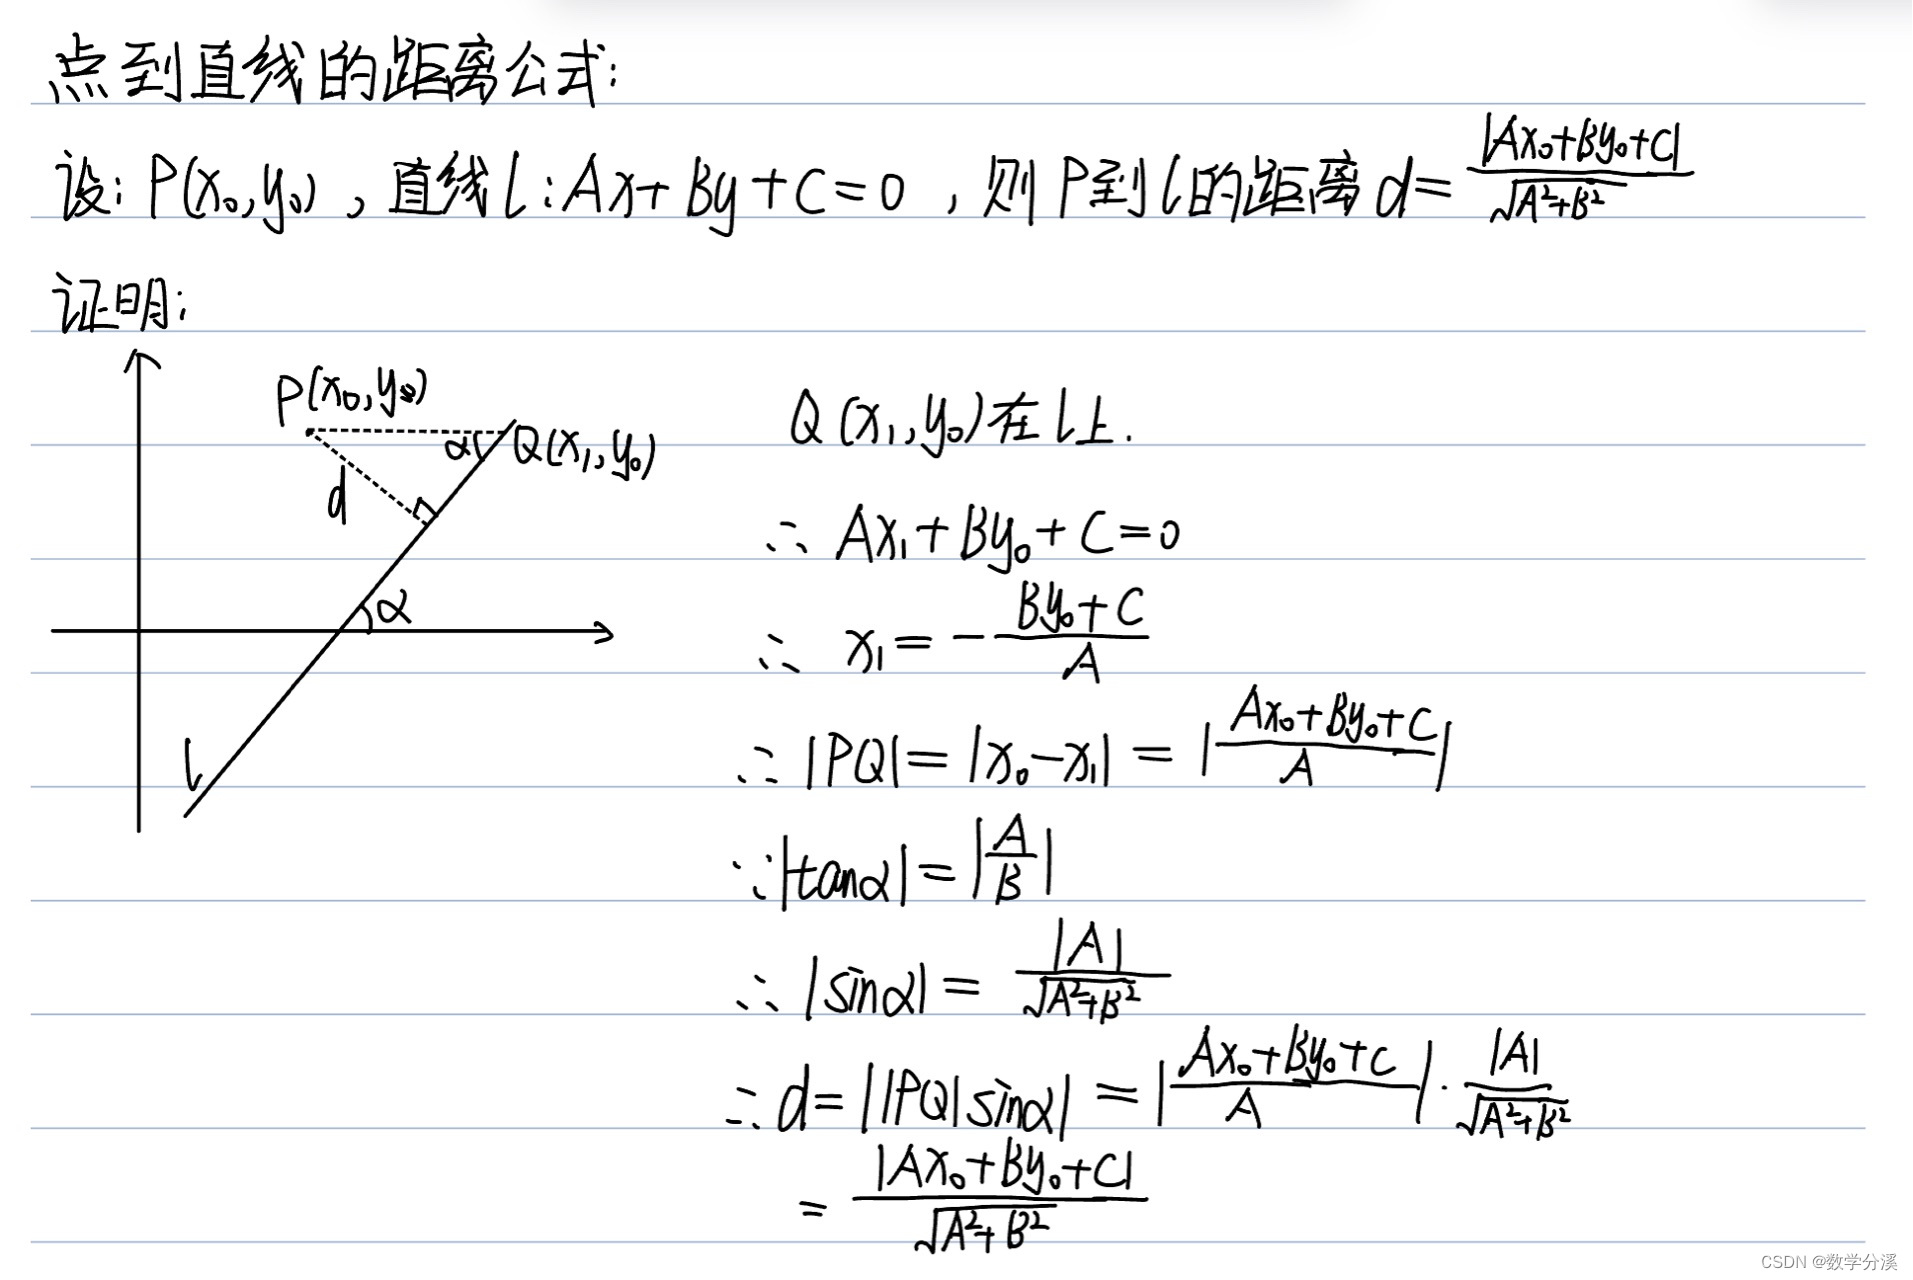 点到直线的距离公式:
设: P(x₀,y₀) , 直线 l : Ax+By+C=0 , 则 P到 l 的距离 d = |Ax₀+By₀+C| / √(A²+B²)
证明:
P(x₀,y₀)
α
Q(x₁,y₀)
d
α
l
Q(x₁,y₀)在 l 上.
∴ Ax₁+By₀+C=0
∴ x₁ = - (By₀+C) / A
∴ |PQ| = |x₀-x₁| = |(Ax₀+By₀+C) / A|
∵ |tanα| = |A/B|
∴ |sinα| = |A| / √(A²+B²)
∴ d = ||PQ|sinα| = |(Ax₀+By₀+C) / A| · |A| / √(A²+B²)
= |Ax₀+By₀+C| / √(A²+B²)
CSDN @数学分溪